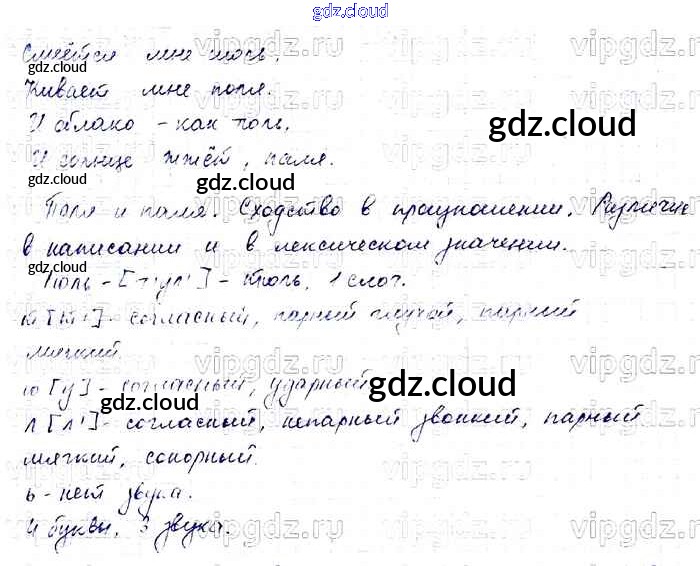 gdz.cloud
Смеётся мне июль,
gdz.cloud
Кивает мне поля.
И облако - как тюль,
gdz.cloud
И солнце жжёт, паля.
gdz.cloud
Поля и паля. Сходство в произношении. Различие
в написании и в лексическом значении.
gdz.cloud
Тюль - [т'ул'] - тюль, 1 слог.
т [т'] - согласный, парный глухой, парный
мягкий.
ю [у] - согласный, ударный
gdz.cloud
gdz.cloud
л [л'] - согласный, непарный звонкий, парный
мягкий, сонорный.
ь - нет звука.
4 буквы, 3 звука.
vipgdz.ru